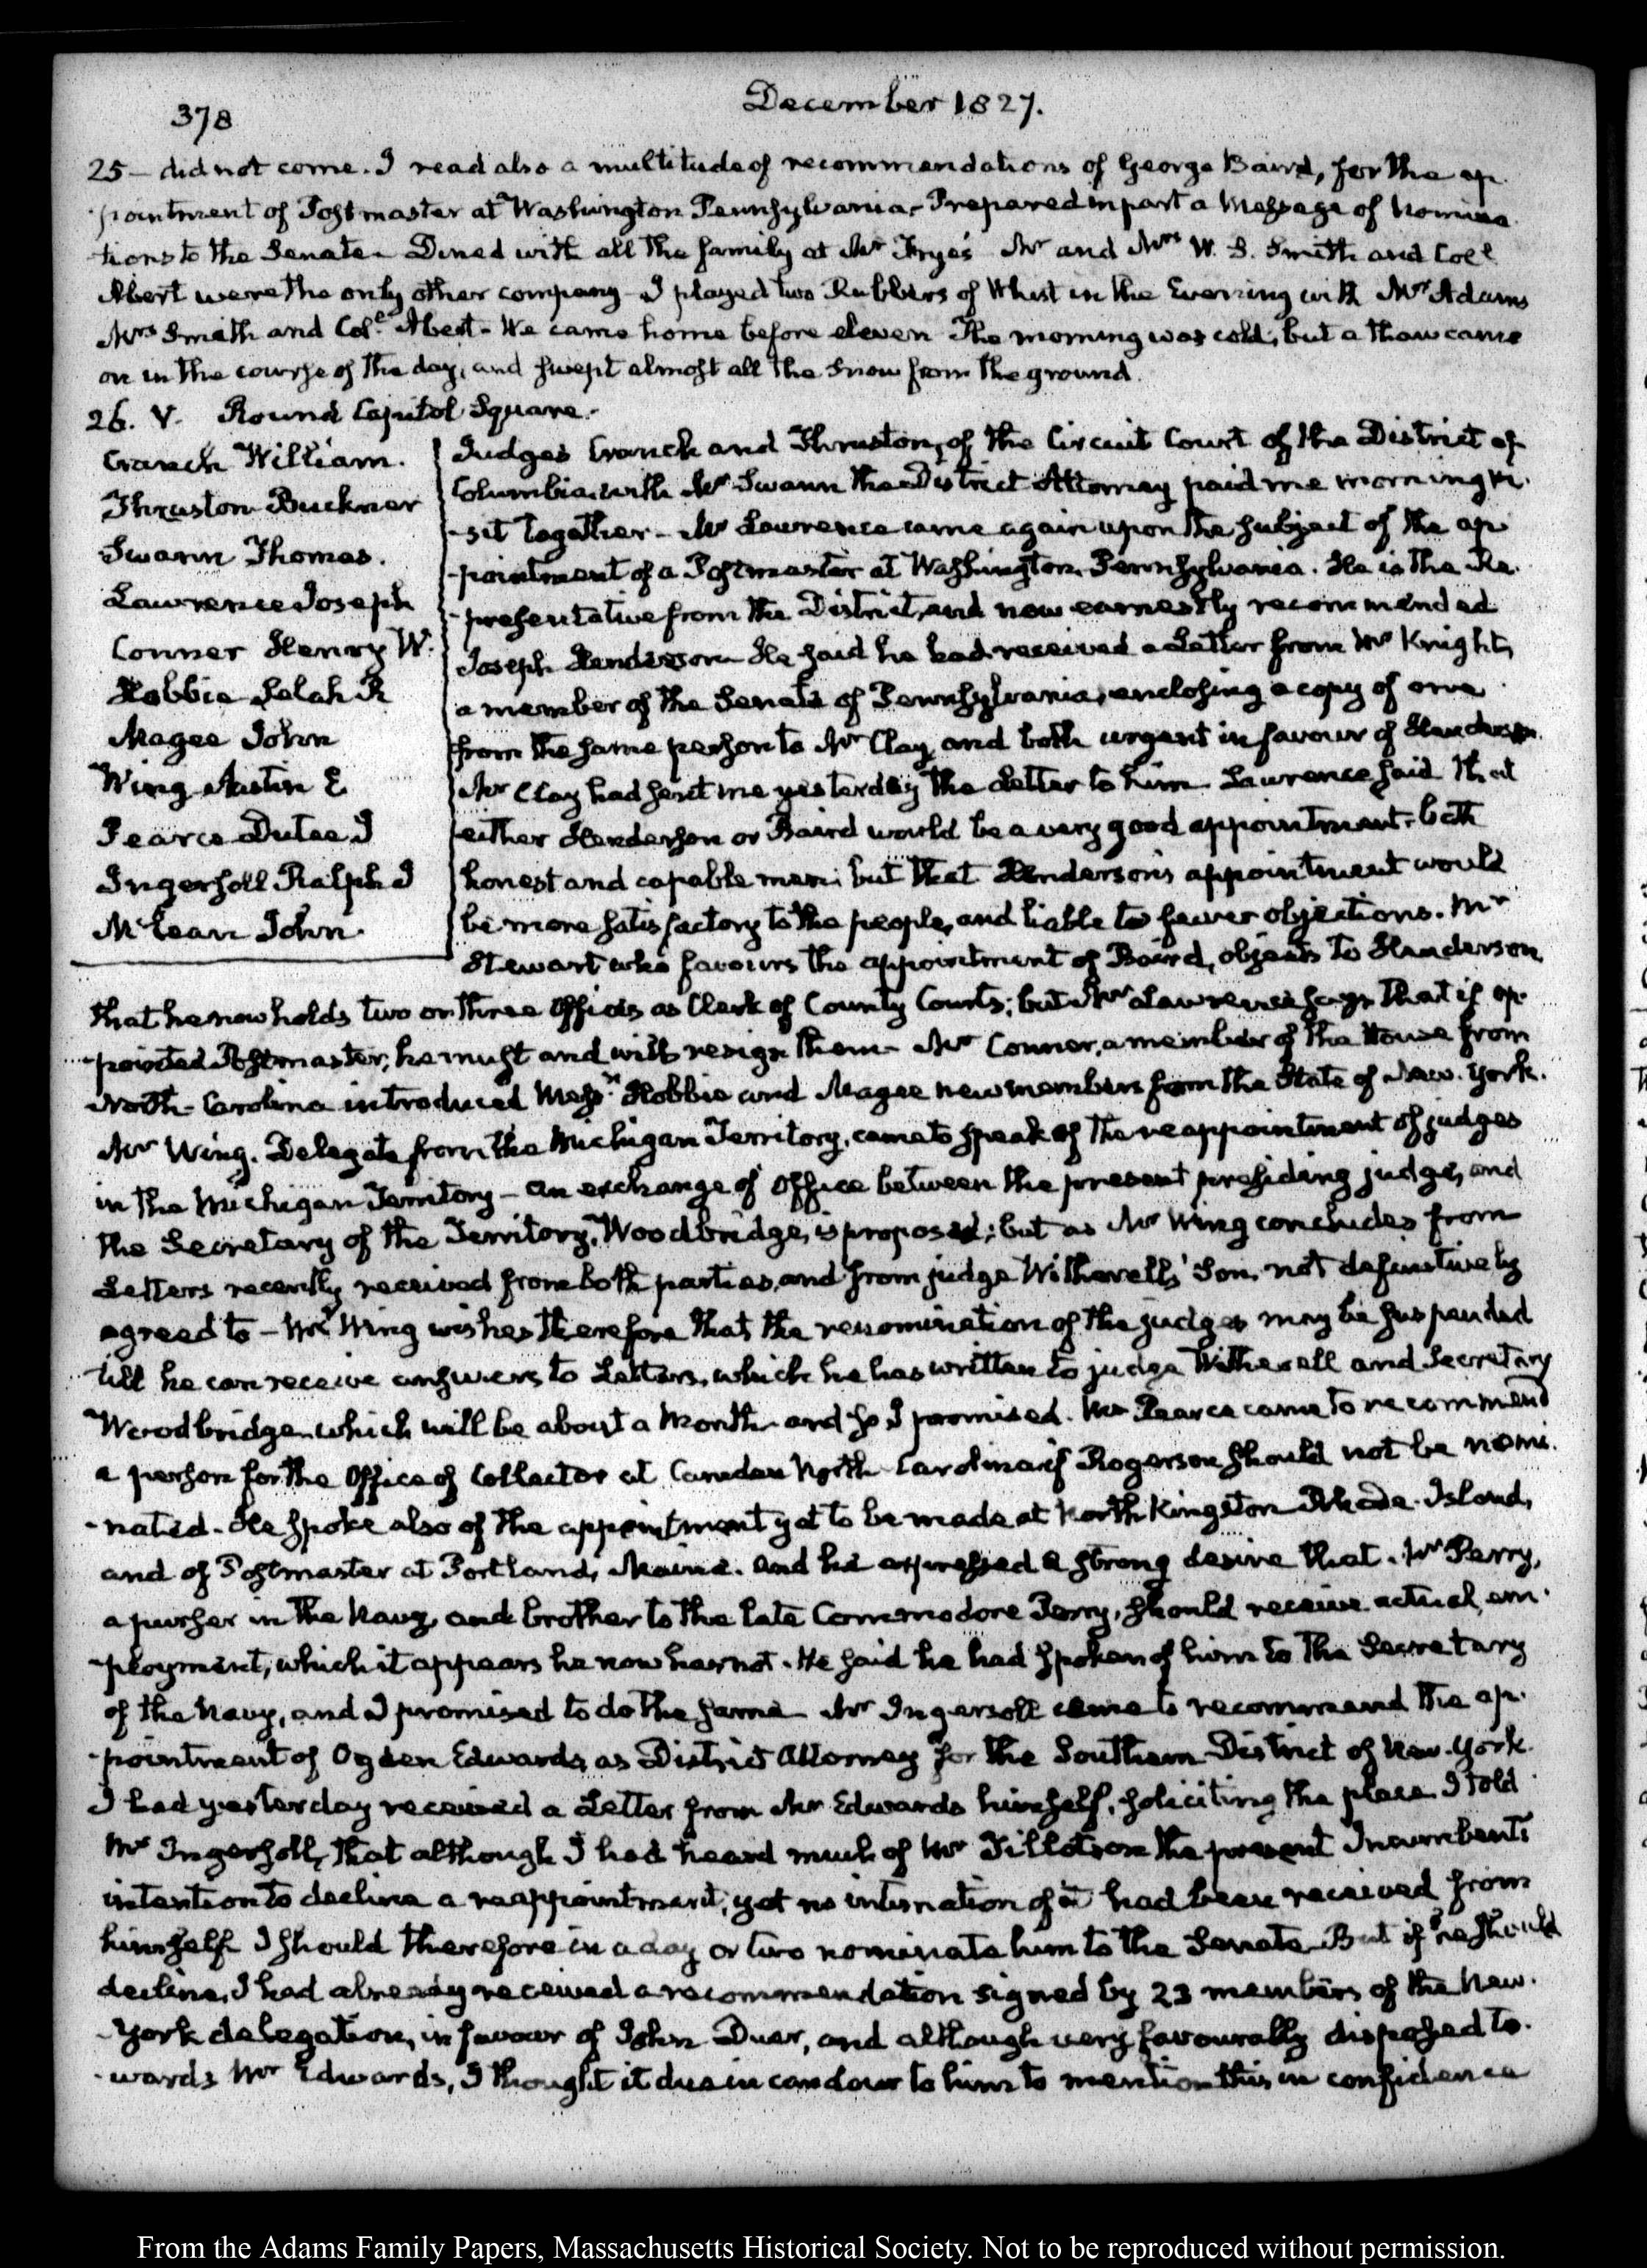 378
December 1827.
25— did not come. I read also a multitude of recommendations of George Baird, for the ap-
-pointment of Postmaster at Washington Pennsylvania. Prepared in part a Message of nomina-
-tions to the Senate. Dined with all the family at Mr Frye's Mr and Mrs W. S. Smith and Coll
Abert were the only other company. I played two Rubbers of Whist in the Evening with Mrs Adams
Mrs Smith and Col.l Abert. We came home before eleven The morning was cold, but a thaw came
on in the course of the day, and swept almost all the Snow from the ground.
26. V. Round Capitol Square.
Cranch William.
Thruston Buckner
Swann Thomas.
Lawrence Joseph
Conner Henry W.
Hobbie Selah R
Magee John
Wing Austin E
Pearce Dutee J
Ingersoll Ralph I
McLean John.
Judges Cranch and Thruston, of the Circuit Court of the District of
Columbia with Mr Swann the District Attorney paid me morning vi-
-sit together. Mr Lawrence came again upon the subject of the ap-
-pointment of a Postmaster at Washington, Pennsylvania. He is the Re-
-presentative from the District, and now earnestly recommended
Joseph Henderson. He said he had received a Letter from Mr Knight,
a member of the Senate of Pennsylvania, enclosing a copy of one
from the same person to Mr Clay, and both urgent in favour of Henderson.
Mr Clay had sent me yesterday the Letter to him. Lawrence said that
either Henderson or Baird would be a very good appointment, both
honest and capable men; but that Henderson's appointment would
be more satisfactory to the people, and liable to fewer objections. Mr
Stewart who favours the appointment of Baird, objects to Henderson
that he now holds two or three Offices as Clerk of County Courts; but Mr Lawrence says that if ap-
-pointed Postmaster, he must and will resign them. Mr Conner, a member of the House from
North-Carolina introduced Messrs Hobbie and Magee new members from the State of New-York.
Mr Wing. Delegate from the Michigan Territory, came to speak of the reappointment of judges
in the Michigan Territory — An exchange of Office between the present presiding judge, and
the Secretary of the Territory, Woodbridge, is proposed; but as Mr Wing concludes from
Letters recently received from both parties, and from judge Witherell's Son, not definitively
agreed to — Mr Wing wishes therefore that the renomination of the judges may be suspended
till he can receive answers to Letters, which he has written to judge Witherell and Secretary
Woodbridge which will be about a Month and so I promised. Mr Pearce came to recommend
a person for the Office of Collector at Camden North-Carolina if Rogerson should not be nomi-
-nated. He spoke also of the appointment yet to be made at North Kingston Rhode-Island,
and of Postmaster at Portland, Maine. And he expressed a strong desire that Mr Perry,
a purser in the Navy, and brother to the late Commodore Perry, should receive actual em-
-ployment, which it appears he now has not. He said he had spoken of him to the Secretary
of the Navy, and I promised to do the same. Mr Ingersoll came to recommend the ap-
-pointment of Ogden Edwards, as District Attorney for the Southern District of New-York.
I had yesterday received a Letter from Mr Edwards himself, soliciting the place. I told
Mr Ingersoll, that although I had heard much of Mr Tillotson the present Incumbent's
intention to decline a reappointment, yet no intimation of it had been received from
himself. I should therefore in a day or two nominate him to the Senate. But if he should
decline, I had already received a recommendation signed by 23 members of the New-
-York delegation, in favour of John Duer, and although very favourably disposed to-
-wards Mr Edwards, I thought it due in candour to him to mention this in confidence
From the Adams Family Papers, Massachusetts Historical Society. Not to be reproduced without permission.